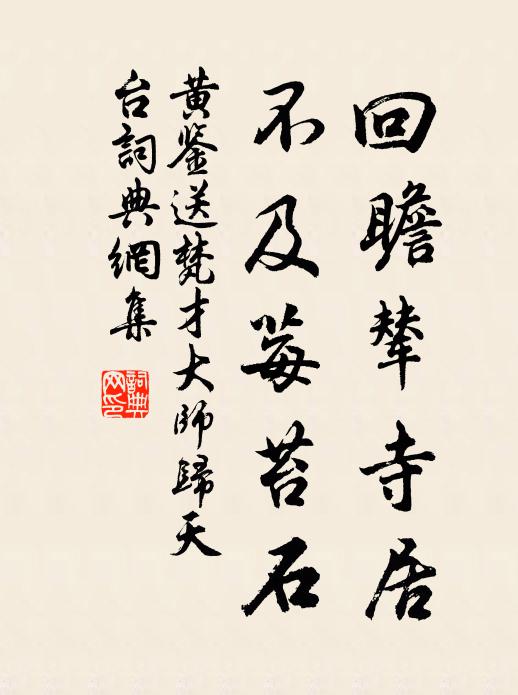 回瞻輦寺居
不及莓苔石
黄鉴送梵才大師歸天
台詞典網集
詞典
网印